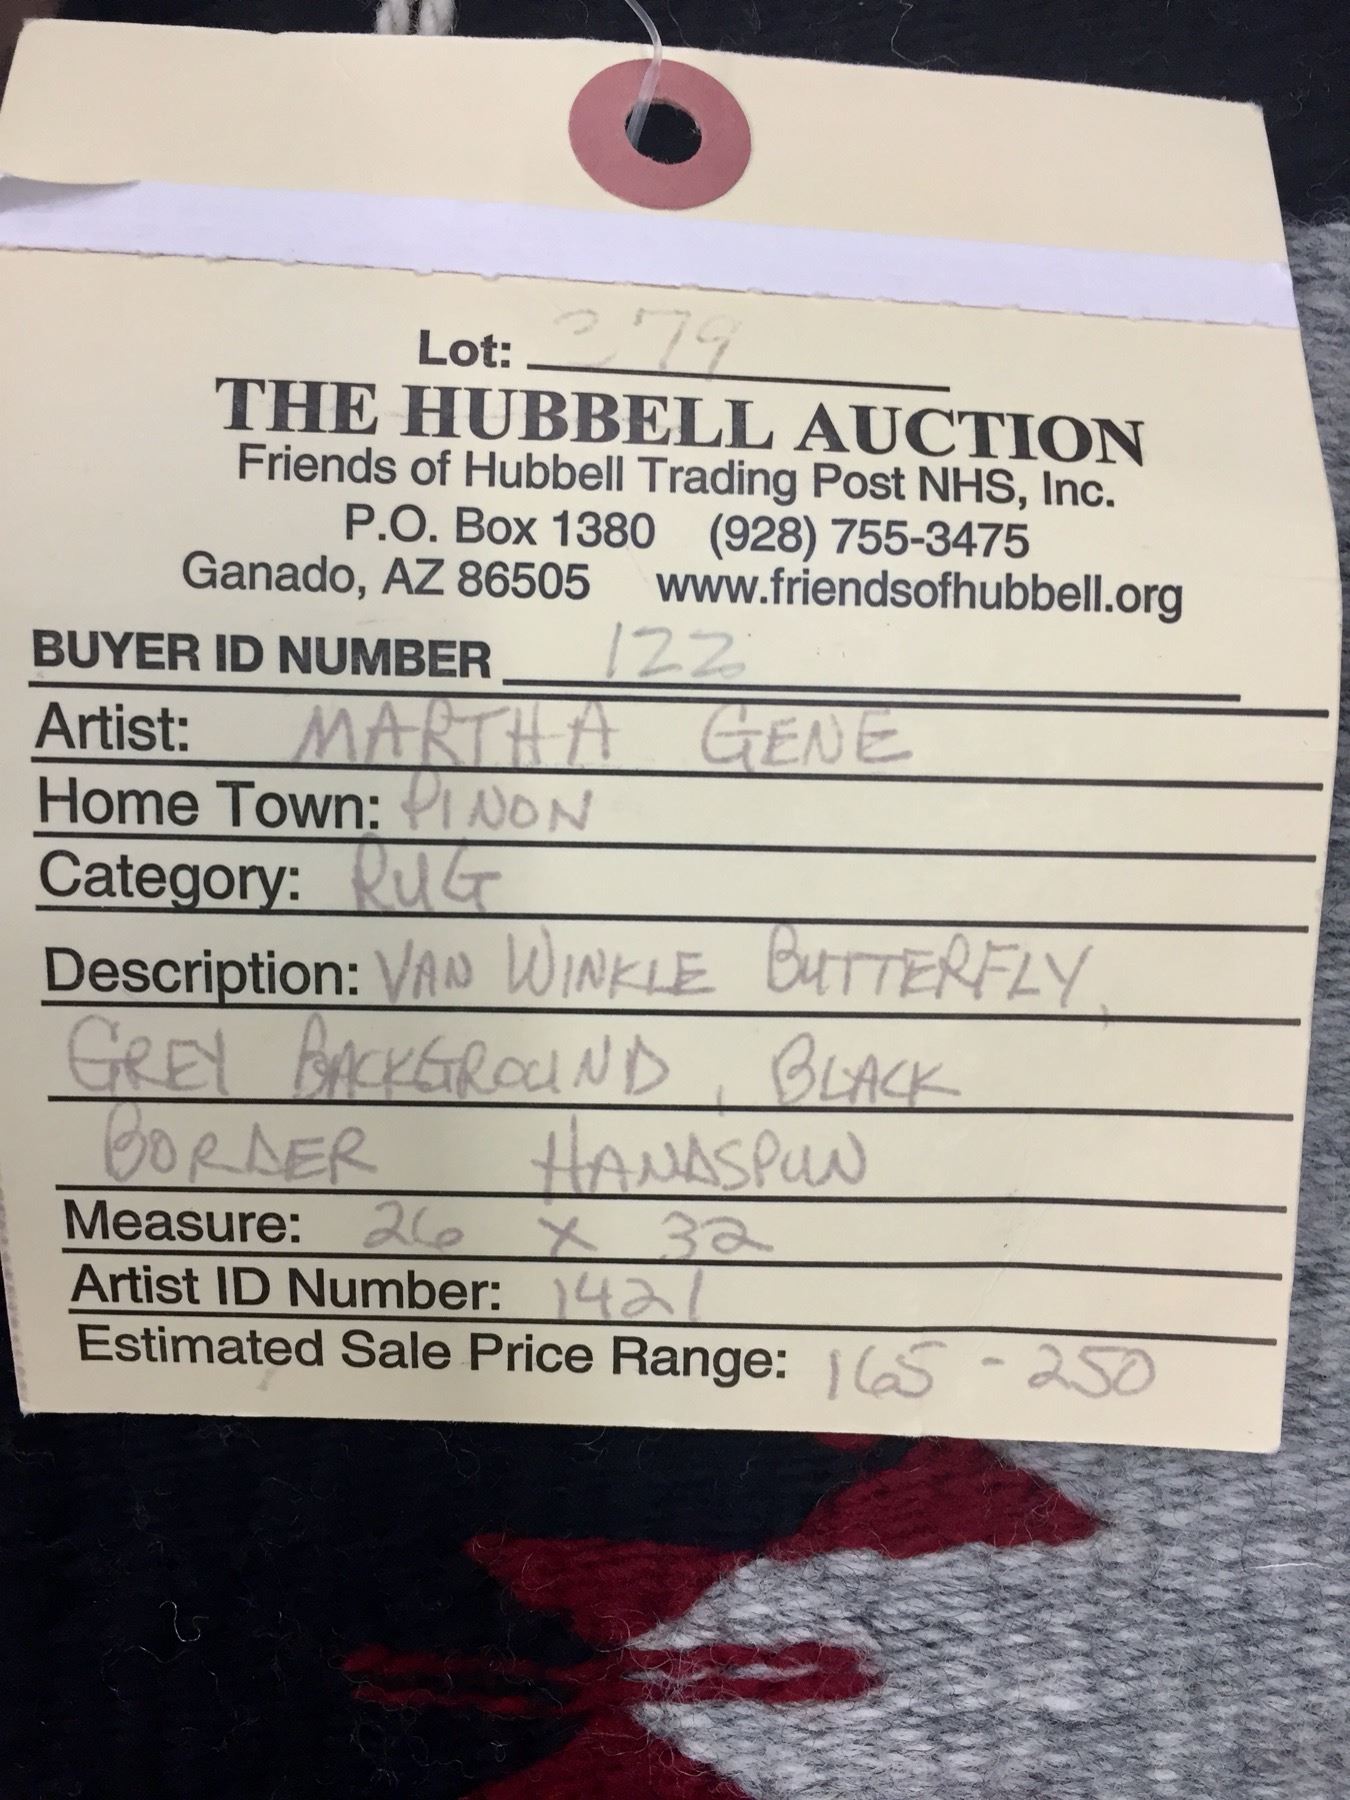 Lot: 279
THE HUBBELL AUCTION
Friends of Hubbell Trading Post NHS, Inc.
P.O. Box 1380 (928) 755-3475
Ganado, AZ 86505 www.friendsofhubbell.org
BUYER ID NUMBER 122
Artist: MARTHA GENE
Home Town: PINON
Category: RUG
Description: VAN WINKLE BUTTERFLY,
GREY BACKGROUND, BLACK
BORDER HANDSPUN
Measure: 26 x 32
Artist ID Number: 1421
Estimated Sale Price Range: 165 - 250